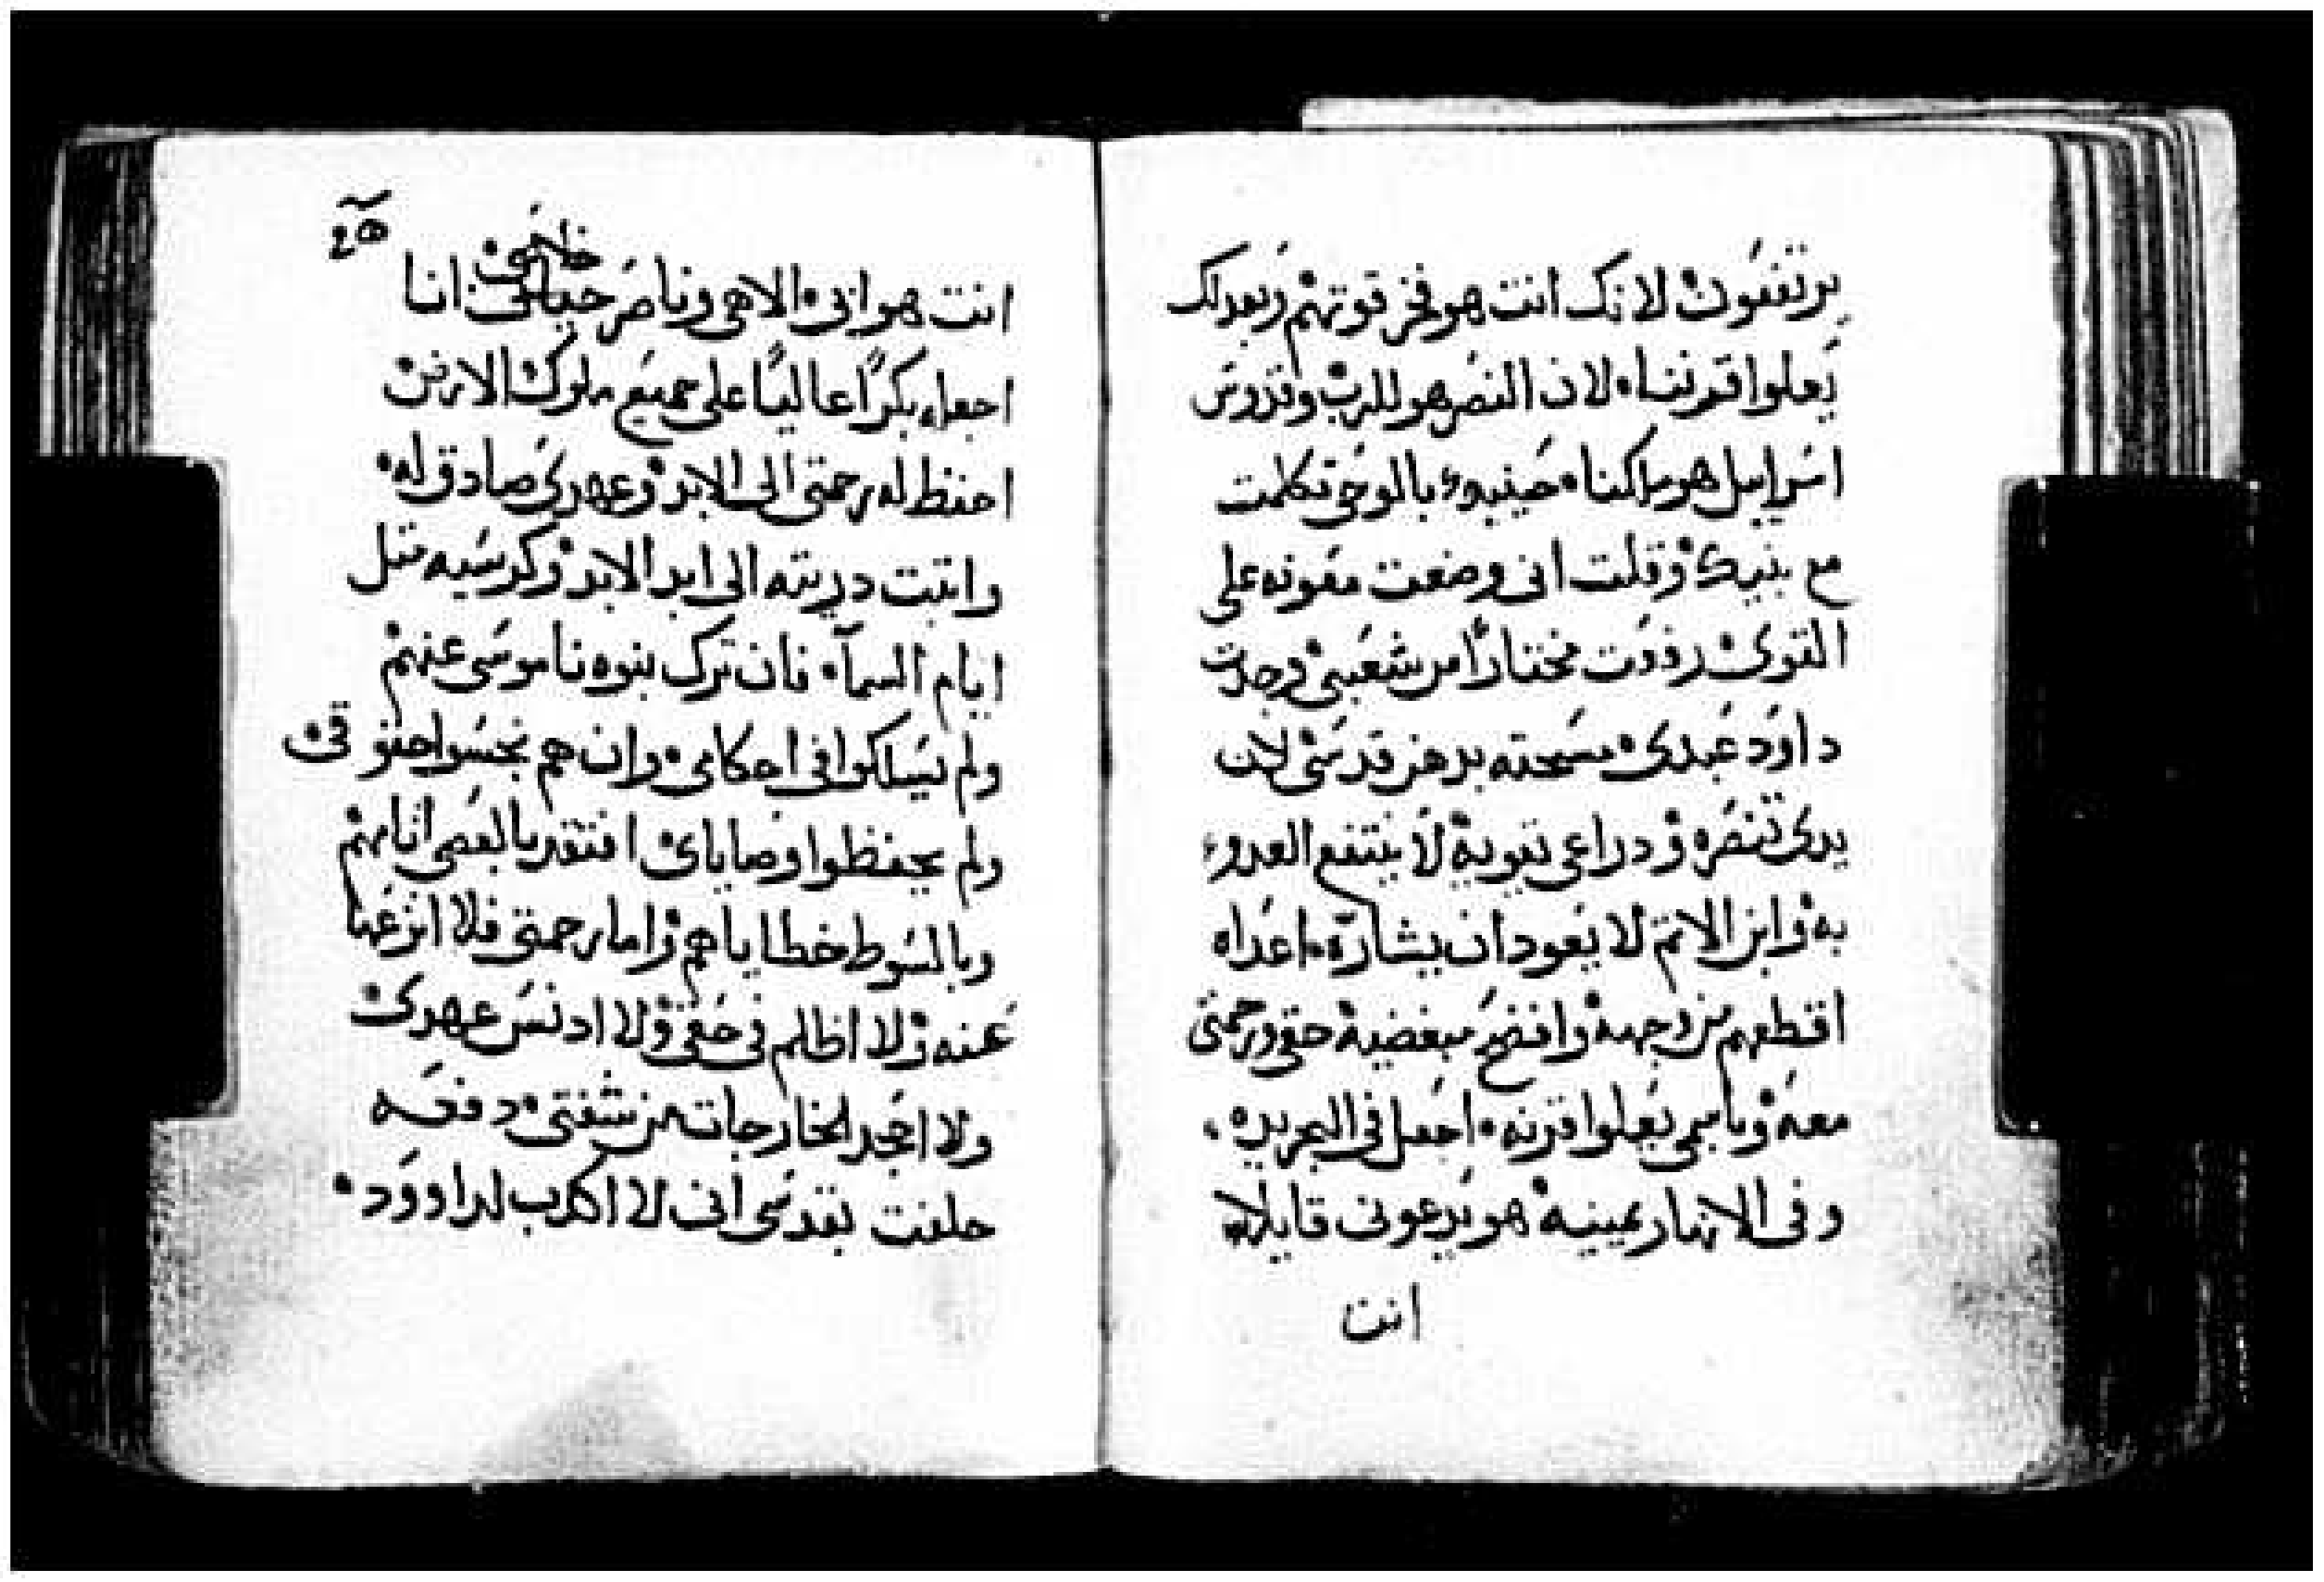 يرتفعون لانك انت هو فخر قوتهم وبعدلك
يعلوا قرننا. لان النصر هو للرب وقدوس
اسراييل هو ملكنا. حينيدٍ بالوحي تكلمت
مع بنيك وقلت اني وضعت معونه على
القوى رفعت مختارًا من شعبي وجدت
داود عبدى مسحته بدهن قدسي لان
يدى تنصره وذراعي تقويه لا ينتفع العدوء
به وابن الاتم لا يعود ان يشاره. اعداه
اقطعهم من وجهه وافضح مبغضيه حقي ورحمتي
معه وباسمي يعلوا قرنه. اجعل في البحر يده.
وفي الانهار يمينه هو يدعوني قايلاً
انت
٤٥
خلاصي
انت هو ابي. الاهي وناصر حياتي. انا
اجعله بكرًا عاليًا على جميع ملوك الارض
احفظ له رحمتي الى الابد وعهدي صادق له.
واتبت دريته الى ابد الابد وكرسيه متل
ايام السمآ. فان ترك بنوه ناموسي عنهم
ولم يسلكوا في احكامي. وان هم نجسوا حقوقي
ولم يحفظوا وصاياى افتقد بالعصي اتامهم
وبالسوط خطاياهم واما رحمتي فلا انزعها
عنه ولا اظلم في حقي ولا ادنس عهدى
ولا اجحد الخارجات من شفتي. دفعه
حلفت بقدسي اني لا اكدب لداوود.